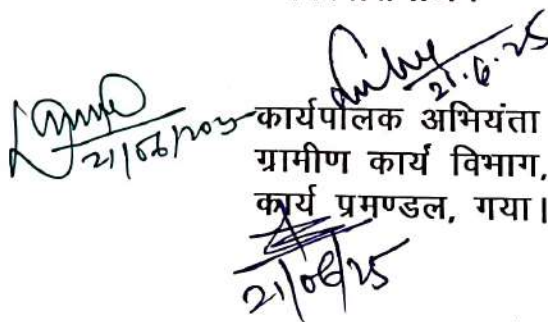 21.6.25
21/06/2025
कार्यपालक अभियंता
ग्रामीण कार्य विभाग,
कार्य प्रमण्डल, गया।
21/06/25